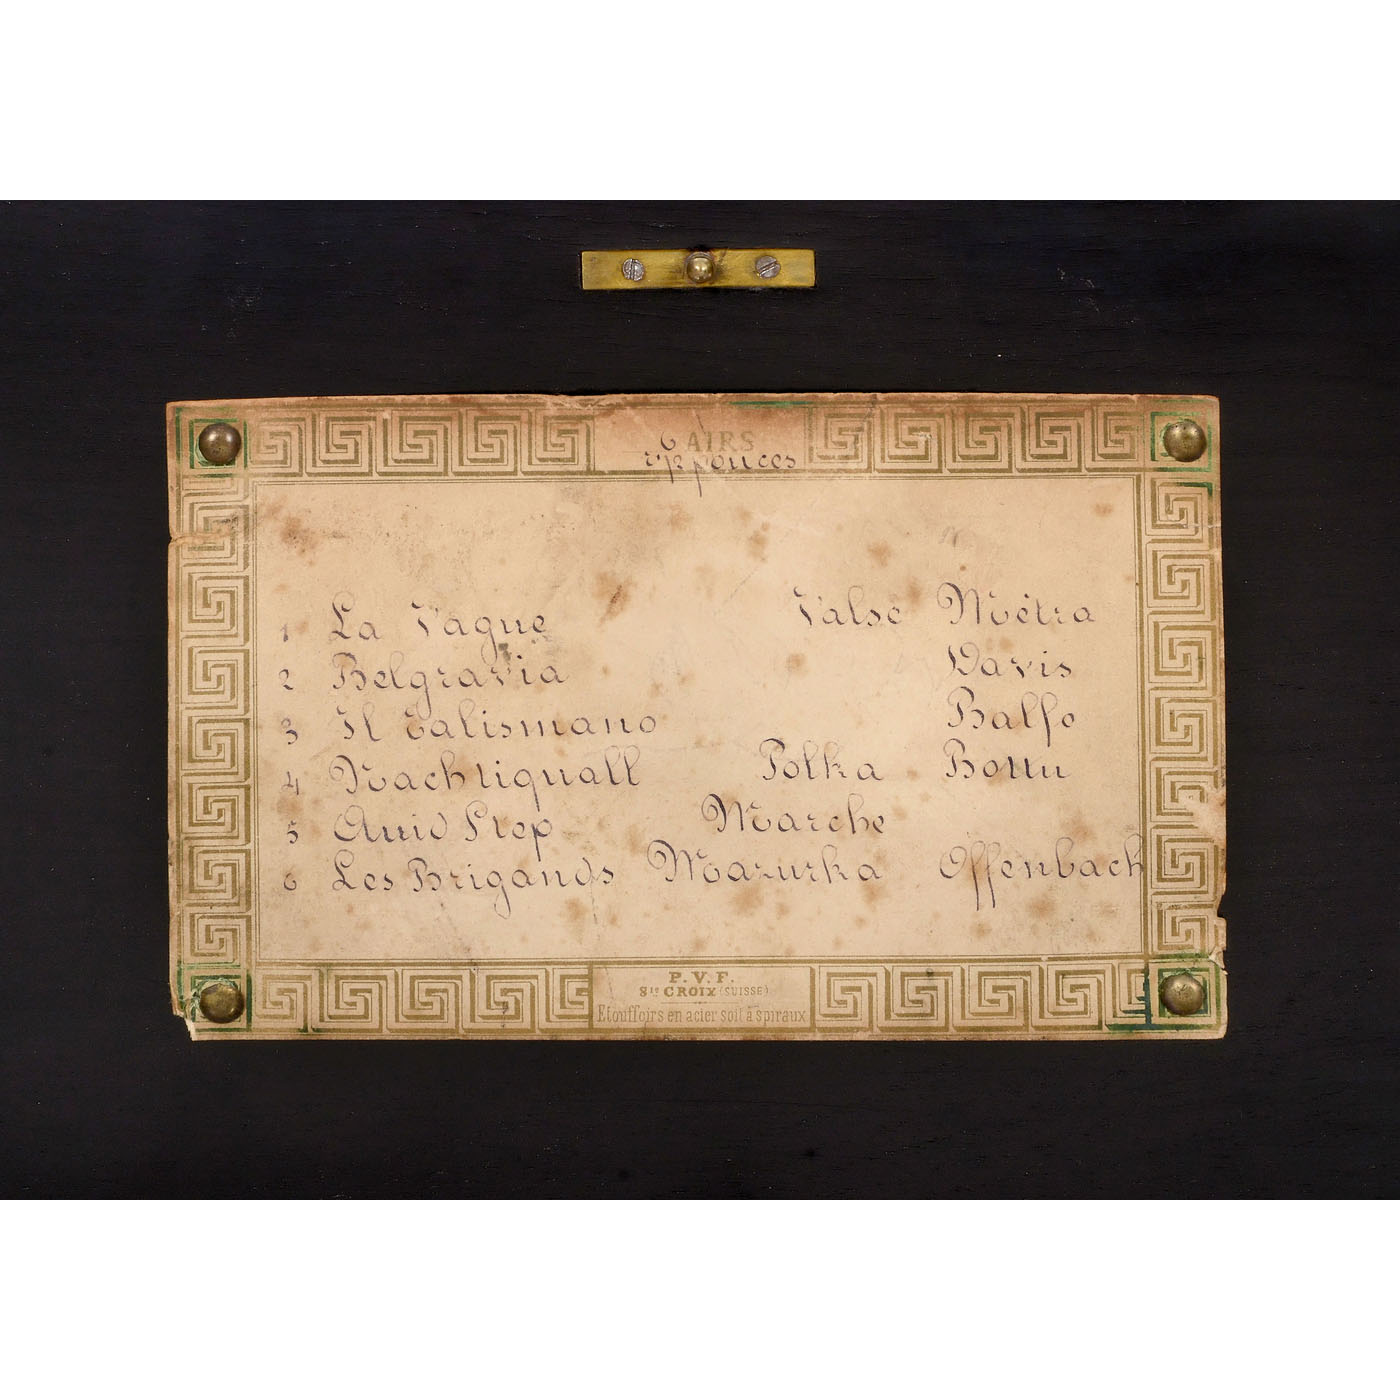 6 AIRS
pouces
1 La Vague Valse Métra
2 Belgravia Davis
3 Il Talismano Balfe
4 Nachtiquall Polka
5 Marche
6 Les Brigands Mazurka Offenbach
P. V. F.
Ste CROIX (SUISSE)
Etouffoirs en acier soit à spiraux